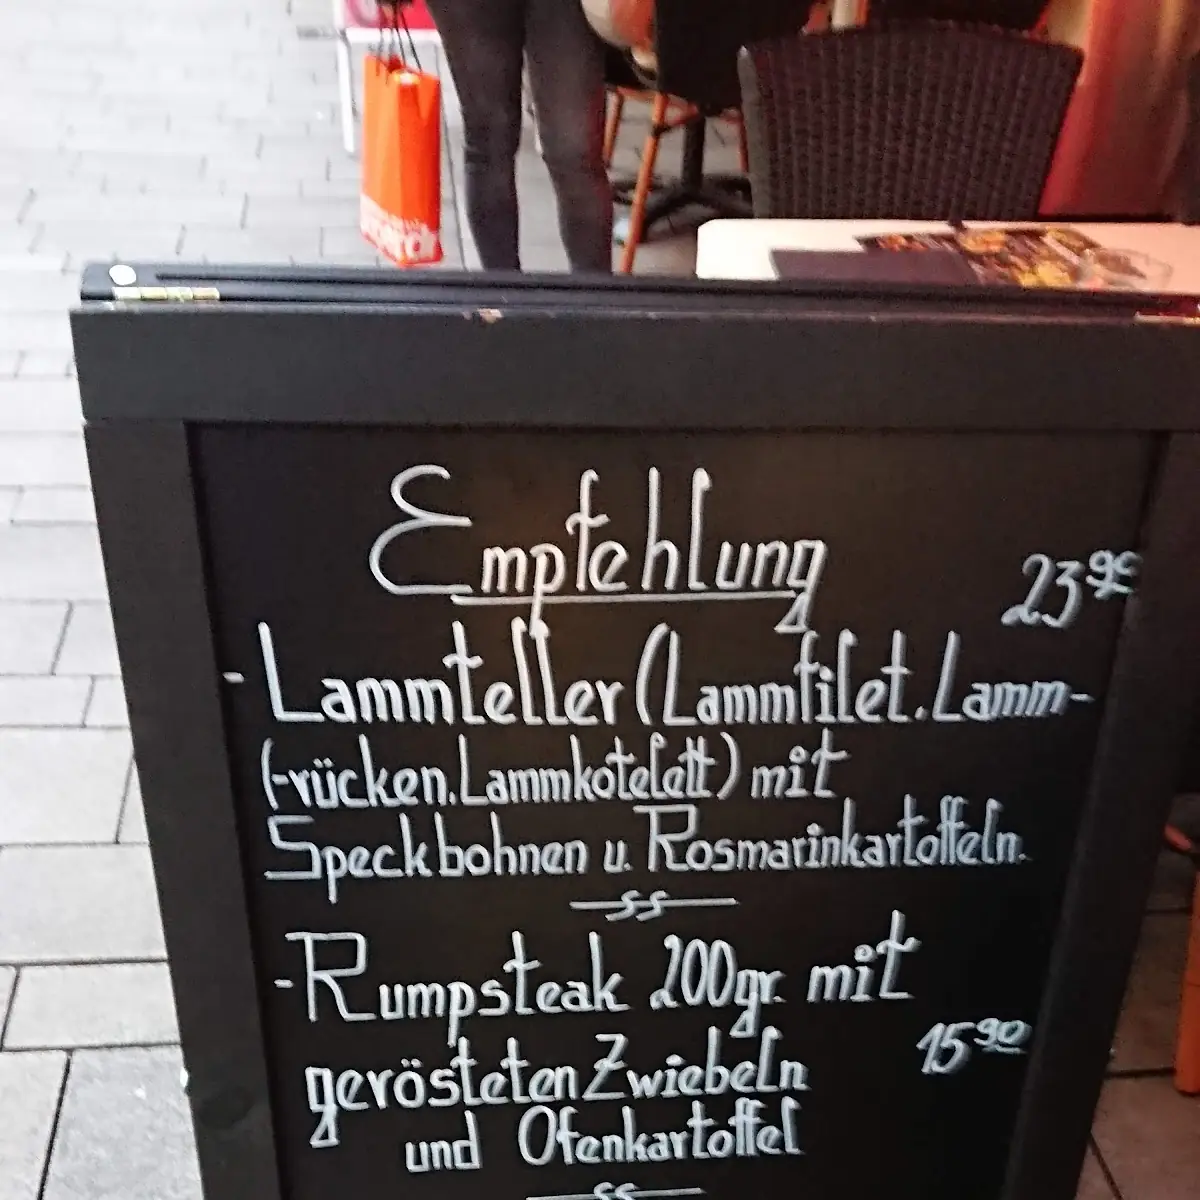 Empfehlung
23 99
- Lammteller (Lammfilet. Lamm-
(-rücken. Lammkotelett) mit
Speckbohnen u. Rosmarinkartoffeln.
- Rumpsteak 200gr. mit
15 90
gerösteten Zwiebeln
und Ofenkartoffel